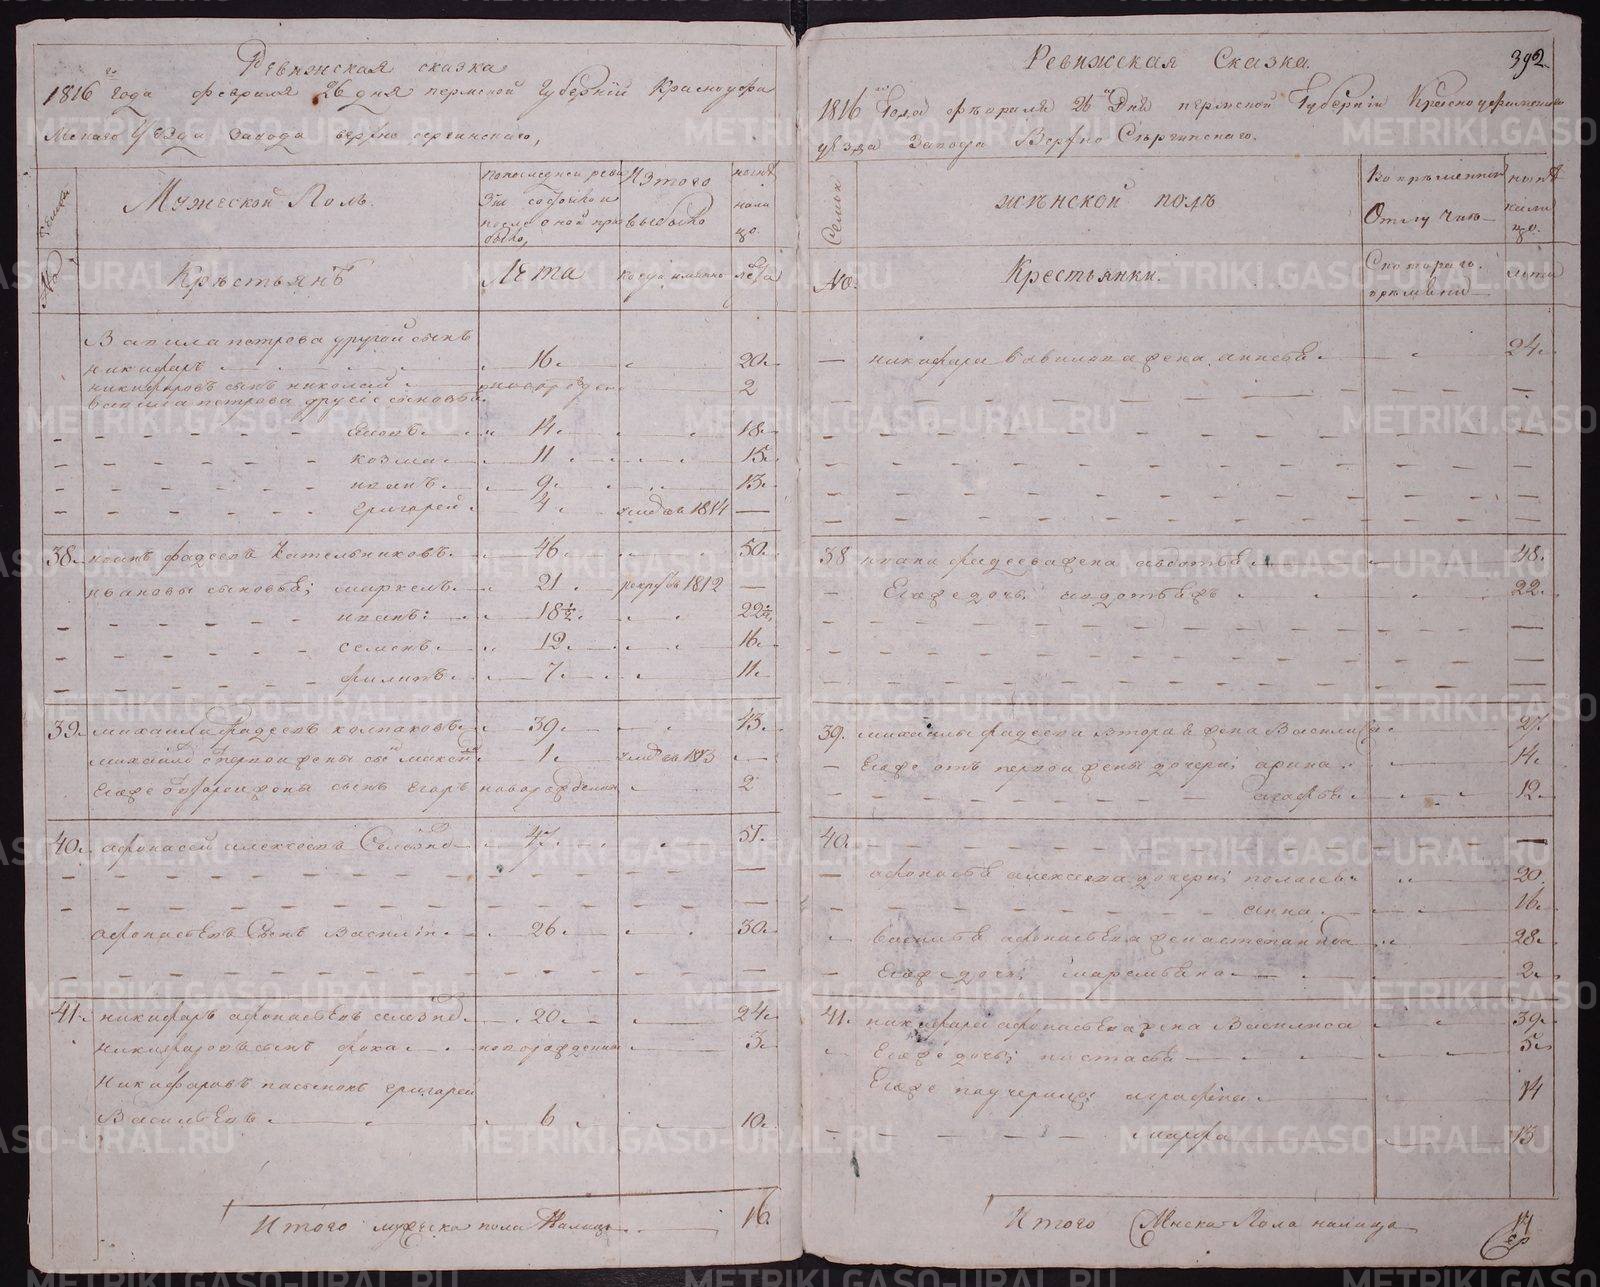 Ревижская сказка
1816го года февраля 26 дня пермской Губернии Красноуфи
мскаго Уезда завода верхно сергинскаго,
Семьи
Мужеской Полъ.
попоследней реви
зіи состояло и
после оной при
было,
Изтого
выбыло
ныне
нали
цо.
№
Крѣстьянъ
Лѣта
когда имянно
лета
Вавила петрова другой сынъ
никифаръ 16. 20.
никифоровъ сынъ николай новорожденъ 2
вавила петрова другие сыновья.
14. 18.
козма 11 15.
иванъ 9. 13.
григорей 4 умре въ 1814 —
38. иванъ фадеевъ Кательниковъ. 46. 50.
ивановы сыновья; маркелъ. 21 рекрутъ въ 1812 —
иванъ: 18½. 22½.
семенъ 12 16.
филипъ 7. 11.
39. михаила фадеевъ колпаковъ 39. 43.
1. умре въ 1813
сынъ Егоръ новорожденной 2
40. афонасей алексеевъ 47. 51.
афонасьевъ Сынъ Василіи 26. 30.
41. никифаръ афонасьевъ 20. 24.
никифоровъ сынъ фока новорожденны 3.
Никафаровъ пасынокъ григорей
Васильевъ 6 10.
Итого мужеска пола Налицо 16.
392.
Ревижская Сказка.
1816го Года февраля 26 Дня пермской Губерніи Красноуфимскаго
уезда Завода Верхно Сергинскаго.
Семьи
женской полъ
Во временной
Отлучкѣ
ныне
нали
цо.
№.
Крестьянки.
Скотораго
времени
лета
— никифара вавилова жена 24.
38 ивана фадеева жена 48.
Егожъ дочь 22.
39. михаилы фадеева вторая жена Василиса 27.
— Егожъ отъ первой жены дочери; арина 14.
агафья 12.
40.
— афонасья алексеева дочери; 20.
анна 16.
василья афонасьева жена степанида 28.
— Егожъ дочь; 2.
41. никифара афонасьева жена Василиса 39.
Егожъ дочь; настасья 5.
Егожъ падчерицы аграфена 14
марфа 13
Итого женска Пола налицо 17